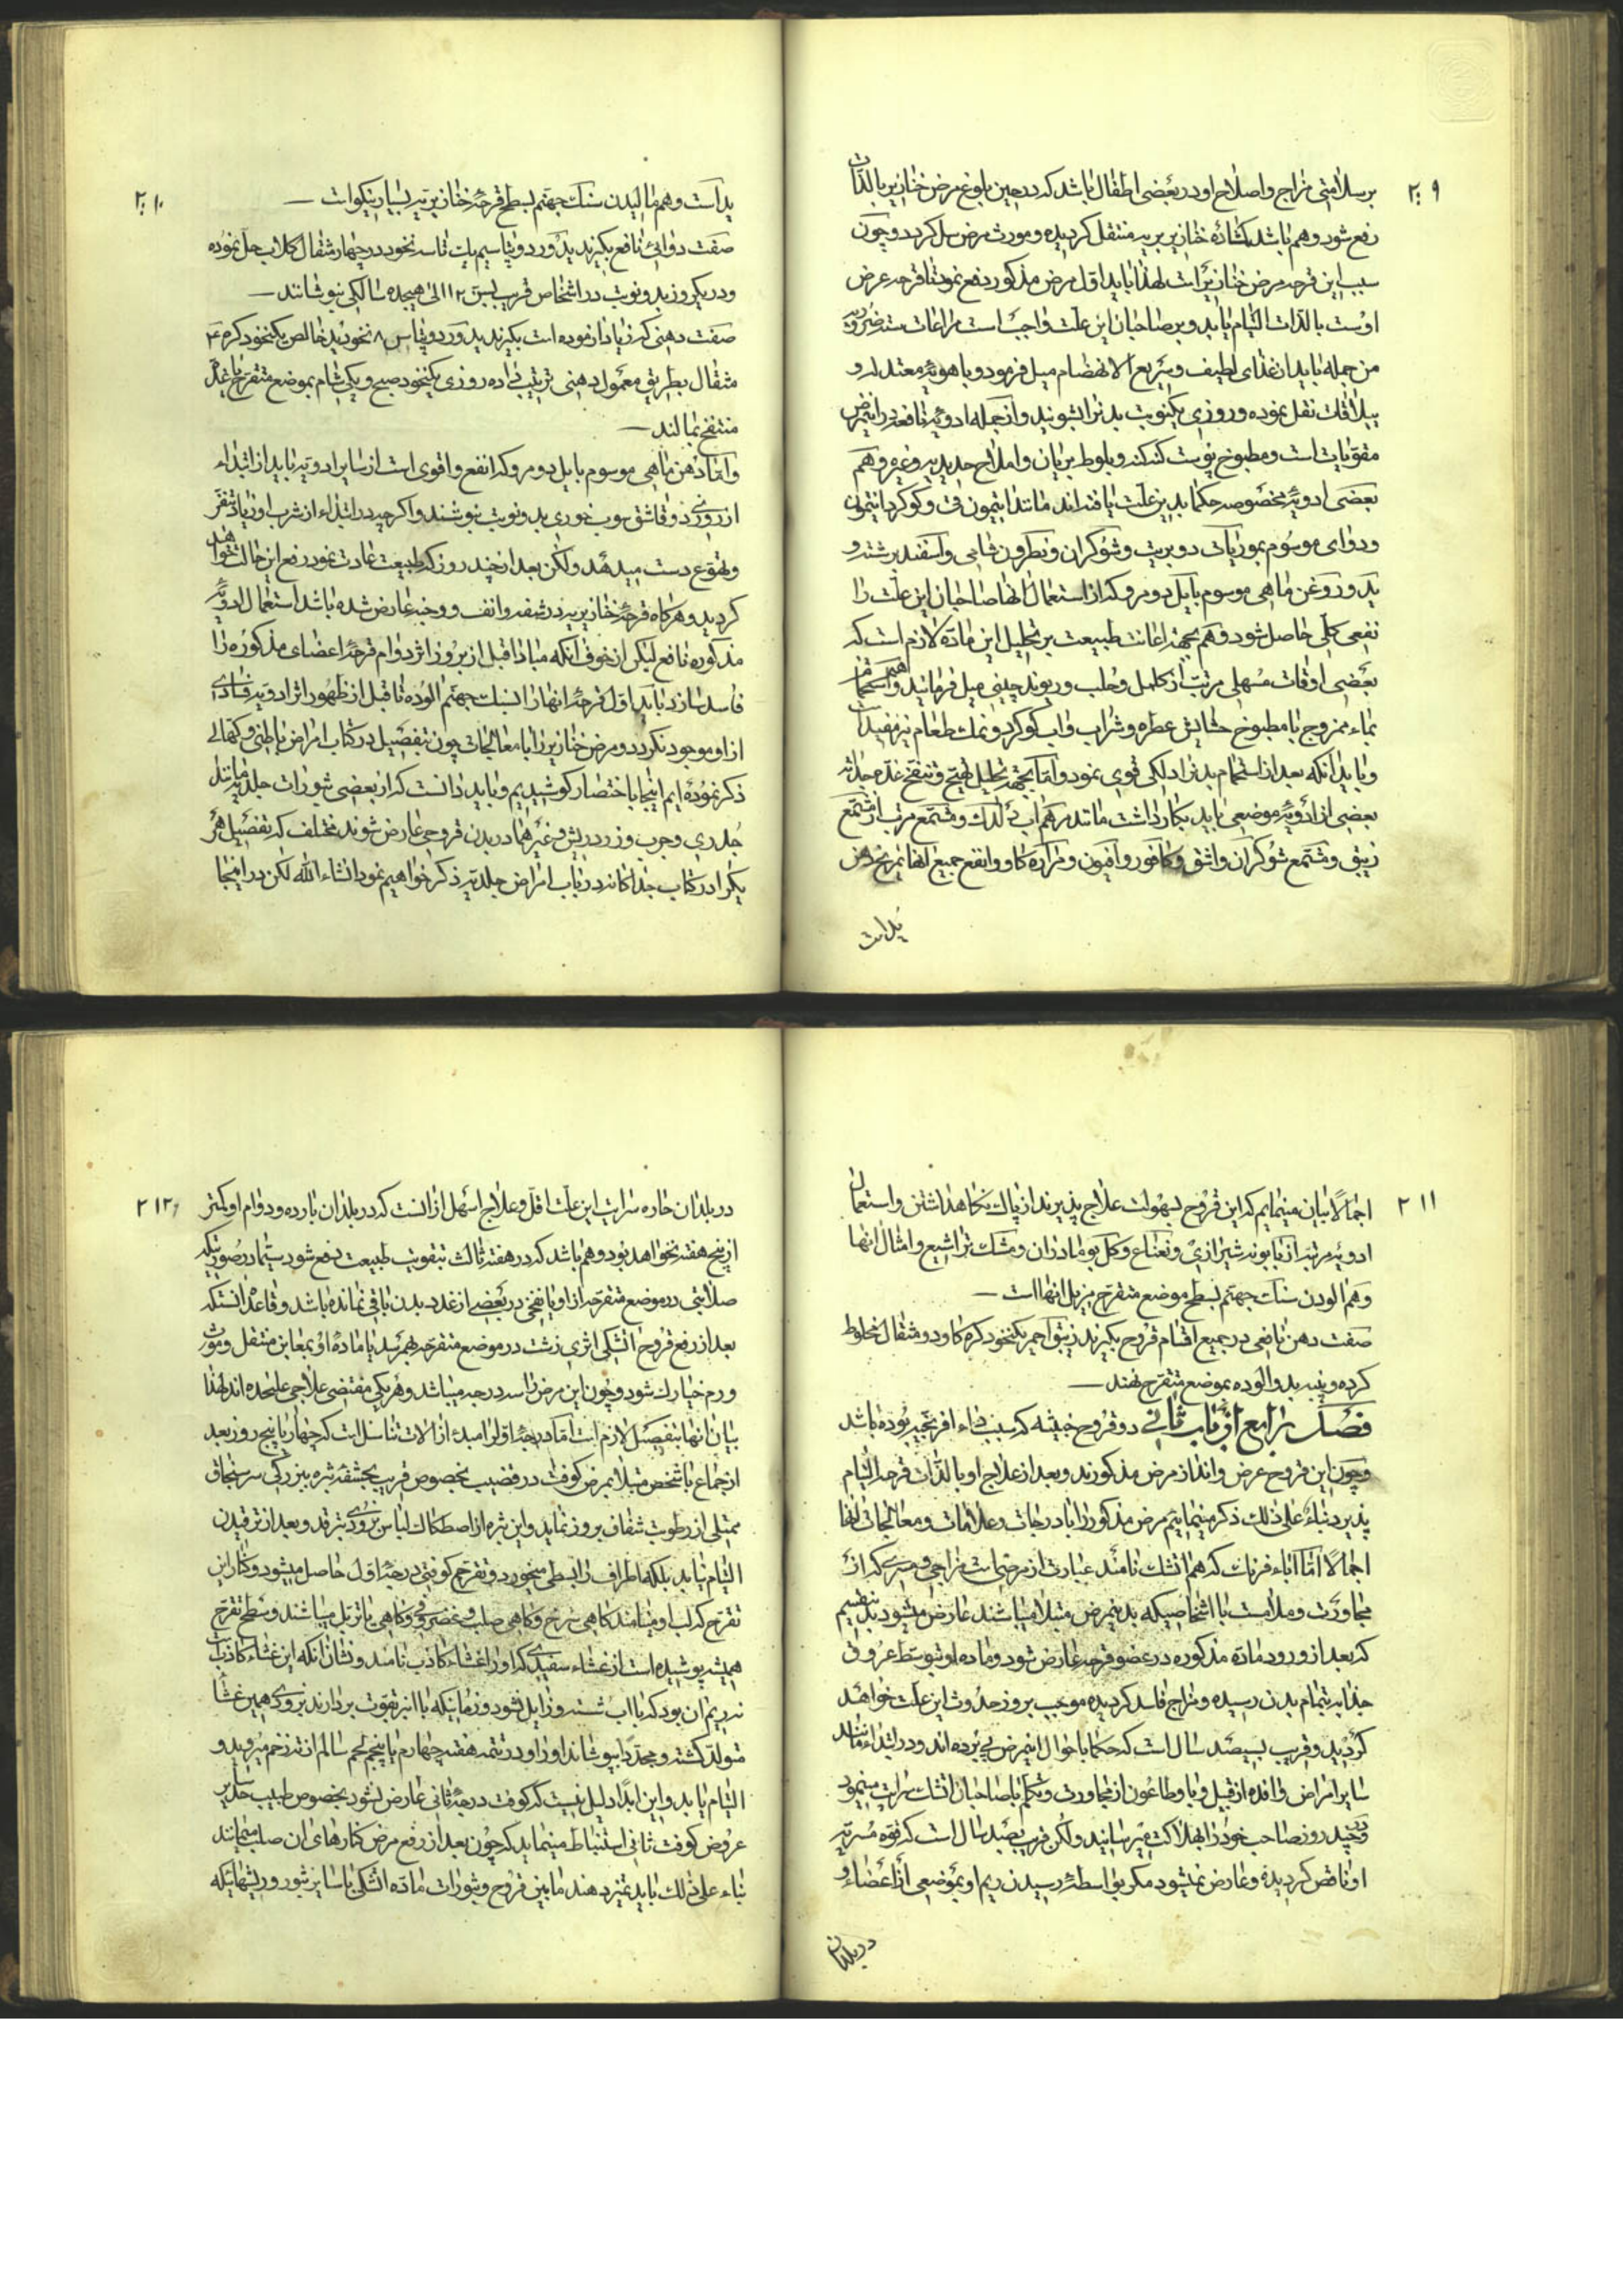 ۲۰۹
بر سلامتی مزاج و اصلاح او در بعضی اطفال باشد که در حین بلوغ مرض خنازیر بالذات
رفع شود و هم باشد که ماده خنازیریه منتقل گردیده و مورث مرض سل گردد و چون
سبب این قرحه مرض خنازیر است لهذا باید اول مرض مذکور دفع نمود تا قرحه عرض
اوست بالذات التیام یابد و بر صاحبان این علت واجب است مراعات سته ضروریه
من جمله باید از غذای لطیف و سریع الانهضام میل فرمود و باهویه معتدله و
ییلاقات نقل نموده و روزی یکنوبت بدنرا بشویند و از جمله ادویه نافعه در اینمرض
مقویات است و مطبوخ پوست کنه کنه و بلوط بریان و املاح حدیدیه و غیره و هم
بعضی ادویه مخصوصه حکما بدین علت یافته اند مانند انتیمون قی و گوگرد انتیمون
و دوای موسوم بموریات دو بریت و شوکران و نطرون شامی و اسفنج برشته و
ید و روغن ماهی موسوم بایل دو مرو که از استعمال انها صاحبان این علت را
نفعی کلی حاصل شود و هم بجهة اعانت طبیعت بر تحلیل این ماده لازم است که
بعضی اوقات مسهلی مرتب از کلمل و جلب و ریوند چینی میل فرمایند و هم استحمام
بماء ممزوج با مطبوخ حشایش عطره و شراب و اب گوگرد و نمک طعام نیز مفید است
و باید انکه بعد از استحمام بدنرا دلکی قوی نمود و اما بجهة تحلیل تهیج و تنفخ غدد جلدیه
بعضی از ادویه موضعی باید بکار داشت مانند مرهم اب ئدلک و مشمع مرتب از مشمع
زیبق و مشمع شوکران و اشق و کافور و افیون و مراره گاو و انفع جمیع انها تمریخ دهن
ید است
۲۱۰
ید است و هم مالیدن سنک جهنم بسطح قرحه خنازیریه بسیار نیکو است
صفت دوائی نافع بکیرند ید ورد و پتاسیم یک تا سه نخود در چهار مثقال گلاب حل نموده
و در یکروز بدو نوبت در اشخاص قریب بسن ۱۲ الی هیجده سالکی بنوشانند
صفت دهنی که زیاد ازموده است بکیرند ید ورد و پتاس ۸ نخود ید خالص یکنخود کره ۴
مثقال بطریق معمول دهنی ترتیب داده روزی یکنخود صبح و یکی شام بموضع متقرح یا غدد
منتفخ بمالند
و اما دهن ماهی موسوم بایل دو مرو که انفع و اقوی است از سایر ادویه باید از ابتداء
از روزی دو قاشق سوپ خوری بدو نوبت بنوشند و اگرچه در ابتداء از شرب او زیاد تنفر
و تهوع دست میدهد ولکن بعد از چند روز که طبیعت عادت نمود رفع این حالت خواهد
گردید و هرگاه قرحه خنازیریه در شفه و انف و وجنه عارض شده باشد استعمال ادویه
مذکوره نافع لیکن از خوف آنکه مبادا قبل از بروز اثر دوام قرحه اعضای مذکوره را
فاسد سازد باید اول قرحه انها را بسنک جهنم الوده تا قبل از ظهور اثر ادویه فسادی
از او موجود نگردد و مرض خنازیر را با معالجات چون بتفصیل در کتاب امراض باطنی و کحالی
ذکر نموده ایم اینجا باختصار کوشیدیم و باید دانست که از بعضی بثورات جلدیه مانند
جدری و جرب و زرد ریش و غیرهما در بدن قروحی عارض شوند مختلف که تفصیل هر
یک را در کتاب جداگانه در باب امراض جلدیه ذکر خواهیم نمود انشاء الله لکن در اینجا
۲۱۱
اجمالا بیان مینمایم که این قروح بسهولت علاج پذیرند از پاک نگاهداشتن و استعمال
ادویه مرتبه از بابونه شیرازی و نعناع و گل بومادران و مشک تراشیع و امثال انها
و هم الودن سنک جهنم بسطح موضع متقرح مزیل انها است
صفت دهن نافعی در جمیع اقسام قروح بکیرند زیبق احمر یکنخود کره گاو دو مثقال مخلوط
کرده و پنبه بدو الوده بموضع متقرح نهند
فصل رابع از باب ثانی در قروح خبیثه که سبب داء افرنجیه بوده باشد
و چون این قروح عرض و انداز مرض مذکورند و بعد از علاج او بالذات قرحه التیام
پذیرد بناء علی ذلک ذکر مینمایم مرض مذکور را با درجات و علامات و معالجات انها
اجمالا اما اباء فرنک که هم اتشک نامند عبارت از مرضیست مزاجی و مسری که از
مجاورت و ملامست با اشخاصیکه بدینمرض مبتلا میباشند عارض میشود بدینقسم
که بعد از ورود ماده مذکوره در عضو قرحه عارض شود و ماده او بتوسط عروق
جذابه بتمام بدن رسیده و مزاج فاسد گردیده موجب بروز حدوث این علت خواهد
گردید و قریب بسیصد سال است که حکما باحوال اینمرض پی برده اند و در ابتداء مانند
سایر امراض وافده از قبیل وبا و طاعون از مجاورت و تکلم با صاحبان اتشک سرایت مینمود
و در چند روز صاحب خود را بهلاکت میرسانید ولکن قریب بصد سال است که قوه مسریه
او ناقص گردیده و عارض نمیشود مگر بواسطه رسیدن ریم او بموضعی از اعضاء و
در بلدان
۲۱۲
در بلدان حاره سرایت این علت اقل و علاج اسهل از انست که در بلدان بارده و دوام او بیشتر
از پنج هفته نخواهد بود و هم باشد که در هفته ثالث بتقویت طبیعت دفع شود سیما در صورتیکه
صلابتی در موضع متقرحه از او یا نفخی در بعضی از غدد بدن باقی نمانده باشد و قاعده انستکه
بعد از رفع قروح اتشکی اثری زشت در موضع متقرحه بهم رسد یا ماده او بمغابن منتقل و مورث
ورم خیارک شود و چون این مرض را سه درجه میباشد و هریکی مقتضی علاجی علیحده اند لهذا
بیان انها بتفصیل لازم است اما درجه اولی را مبدء از الات تناسل است که چهار یا پنج روز بعد
از جماع با شخص مبتلا بمرض کوفت در قضیب بخصوص قریب بحشفه بثره ببزرگی سر سنجاق
ممتلی از رطوبت شفاف بروز نماید و این بثره از اصطکاک لباس بزودی بترقد و بعد از ترقیدن
التیام نیابد بلکه اطراف را بسطی میخورد و تقرح کوفتی درجه اول حاصل میشود و کنار این
تقرح که لب او مینامند گاهی سرخ و گاهی صلب و غضروفی و گاهی با تزیل میباشند و سطح تقرح
همیشه پوشیده است از غشاء سفیدی که او را غشاء کاذب نامند و نشان انکه این غشاء کاذب
نه ریم ان بود که با اب شسته و زایل نشود و زمانیکه با انبر بقوت بردارند بزودی همین غشا
متولد گشته و مجددا بپوشاند او را و در تتمه هفته چهارم یا پنجم لحم سالم از ته زخم میروید و
التیام یابد و این ابدا دلیل نیست که کوفت درجه ثانی عارض نشود بخصوص طبیب حاذق
عروض کوفت ثانی استنباط مینماید که چون بعد از رفع مرض کنارهای ان صلب میمانند
بناء علی ذلک باید تمیز دهند مابین قروح و بثورات ماده اتشکی با سایر بثور و ریشهائیکه